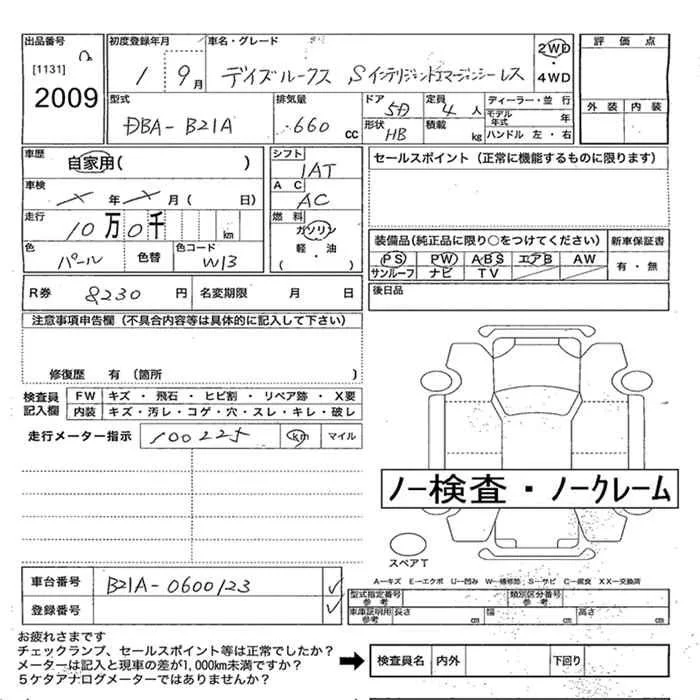 出品番号 初度登録年月 車名・グレード 2WD 評価点
[1131] 1 9月 デイズルークス Sインテリジェントエマージェンシーレス ・
2009 4WD
型式 排気量 ドア 5D 定員 4人 ディーラー・並行 外装 内装
DBA-B21A 660cc 形状 HB 積載 kg モデル年式 年
ハンドル 左・右
車歴 自家用( ) シフト 1AT セールスポイント(正常に機能するものに限ります)
車検 年 月( 日) AC AC
走行 10万0千 km 燃料 ガソリン 装備品(純正品に限り○をつけてください) 新車保証書
色 パール 色替 色コード W13 軽・油 PS PW ABS エアB AW 有・無
( ) サンルーフ ナビ TV
R券 8230円 名変期限 月 日 後日品
注意事項申告欄(不具合内容等は具体的に記入して下さい)
修復歴 有(箇所 )
検査員 FW キズ・飛石・ヒビ割・リペア跡・X要
記入欄 内装 キズ・汚レ・コゲ・穴・スレ・キレ・破レ
走行メーター指示 100225 km マイル
ノー検査・ノークレーム
スペアT
車台番号 B21A-0600123 A−キズ E−エクボ U−凹み W−補修跡 S−サビ C−腐食 XX−交換済
型式指定番号 参考 類別区分番号 参考
登録番号 車庫証明用 参考 長さ cm 幅 cm 高さ cm
お疲れさまです
チェックランプ、セールスポイント等は正常でしたか?
メーターは記入と現車の差が1,000km未満ですか? 検査員名 内外 下回り
5ケタアナログメーターではありませんか?